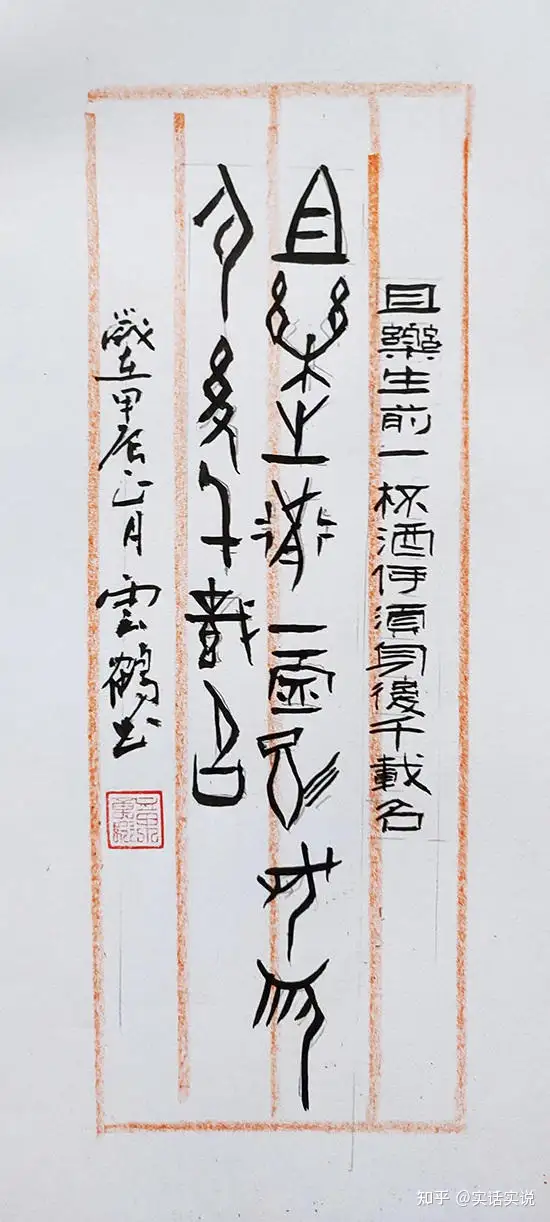 且樂生前一杯酒何須身後千載名
且樂生前一杯酒何須
身後千載名
歲在甲辰正月 雲鶴書
知乎 @实话实说